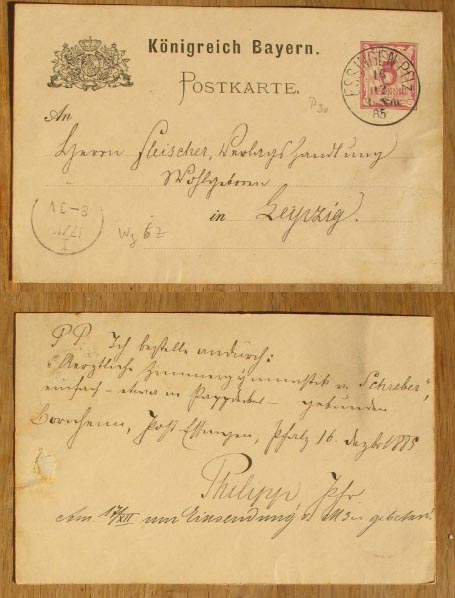 Königreich Bayern.
POSTKARTE.
ESSINGEN PFLZ
16
12
85
An
Herrn Fleischer, Verlagshandlung
Wohlgeboren
in Leipzig.
8-9 V
17/12
I
PP. Ich bestelle andurch:
"Aerztliche Zimmergymnastik v. Schreber",
einfach - etwa in Pappdeckel - gebunden
Bornheim, Post Essingen, Pfalz 16. Dezbr 1885
Philipp, Pfr.
Am 17/XII um Einsendung v. M 3 gebeten.